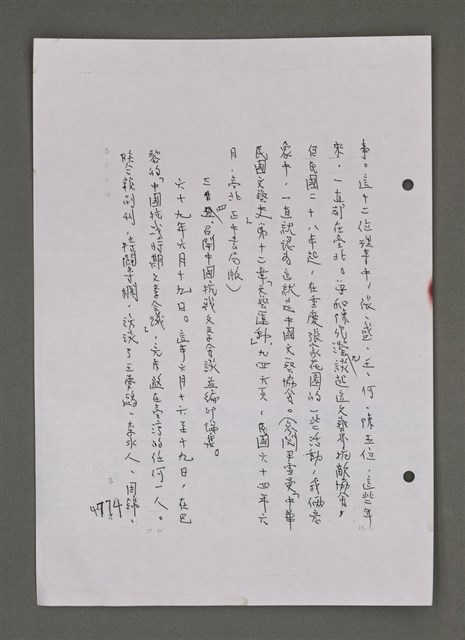 事。這十二位理事中，張、盛、王、何、陳五位，這些年
來，一直都在臺北。每和陳紀瀅談起這文藝界抗敵協會，
自民國二十八年起，在重慶張家花園的一些活動，我倆意
象中，一直就認為這就是中國文藝協會。（參閱尹雪曼「中華
民國文藝史」第十二章「文藝運動」九四六頁，民國六十四年六
月，臺北正中書局版）
三、召開中國抗戰文學會議並編印論集。
六十九年六月十九日。這年六月十六至十九日，在巴
黎的「中國抗戰時期文學會議」，完全設在臺灣的任何一人。
聯合報副刊，特闢專欄，訪談了王夢鷗、梁 人、周錦、
4774